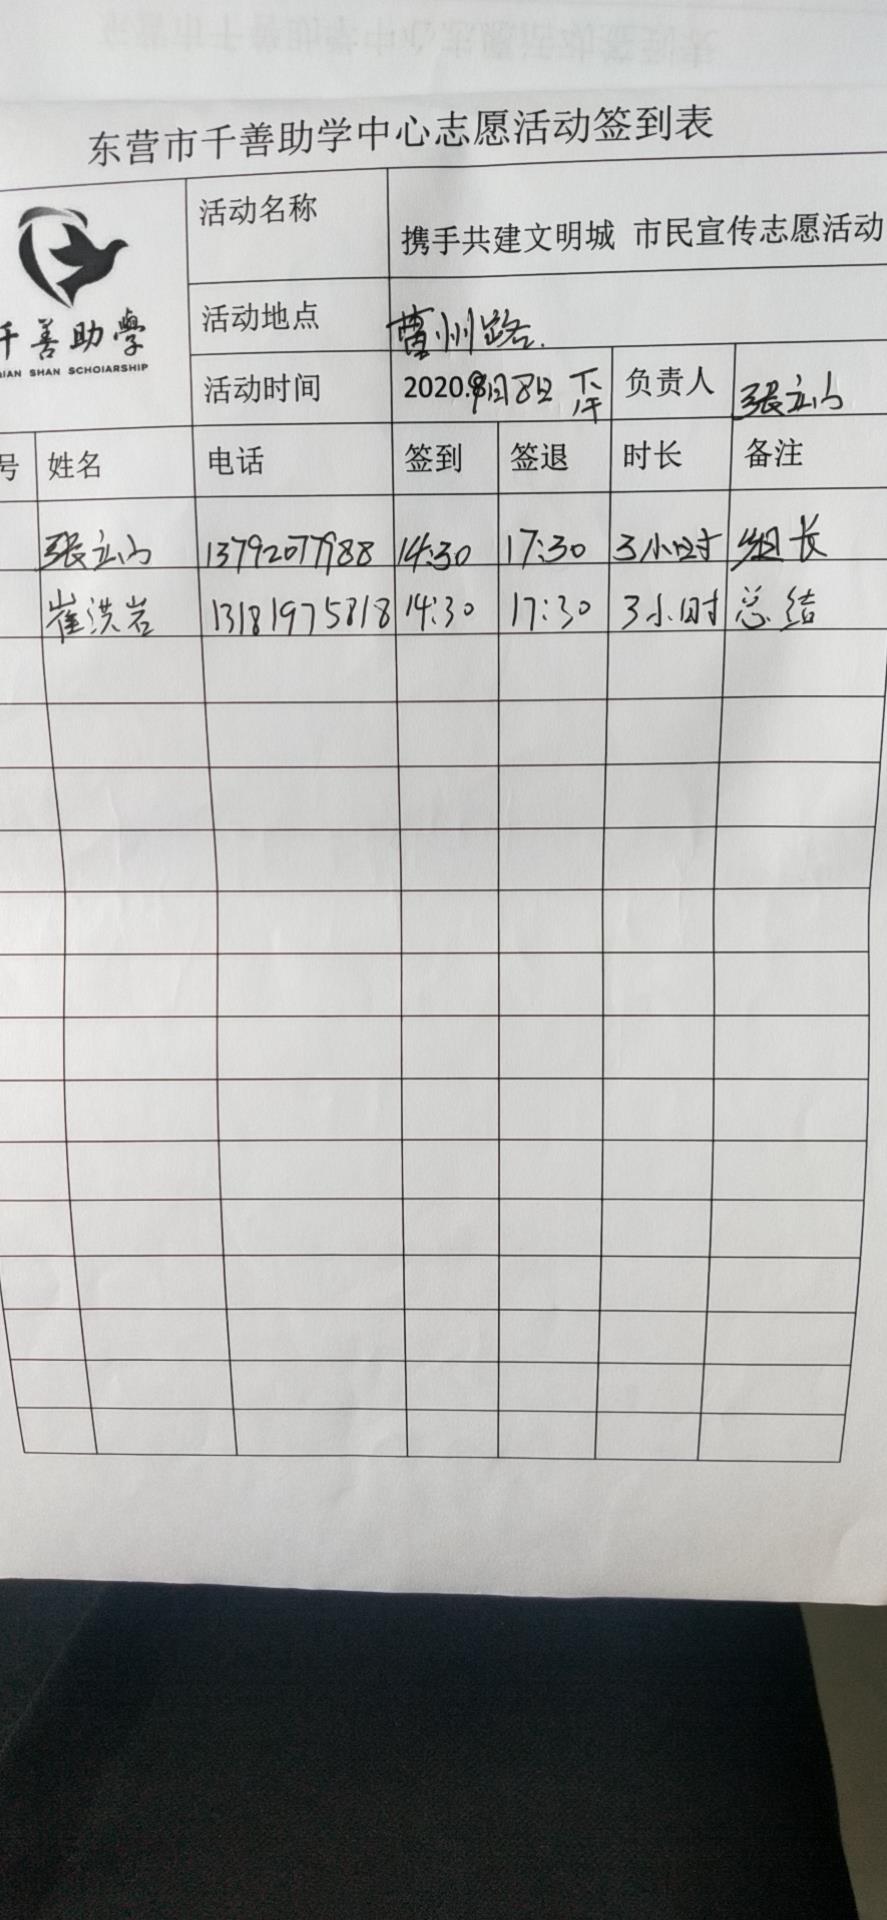 东营市千善助学中心志愿活动签到表
千善助学
QIAN SHAN SCHOIARSHIP
活动名称 携手共建文明城 市民宣传志愿活动
活动地点 曹州路.
活动时间 2020.9月8日 下午 负责人 张立山
号 姓名 电话 签到 签退 时长 备注
张立山 14:30 17:30 3小时 组长
崔洪岩 13181975818 14:30 17:30 3小时 总结